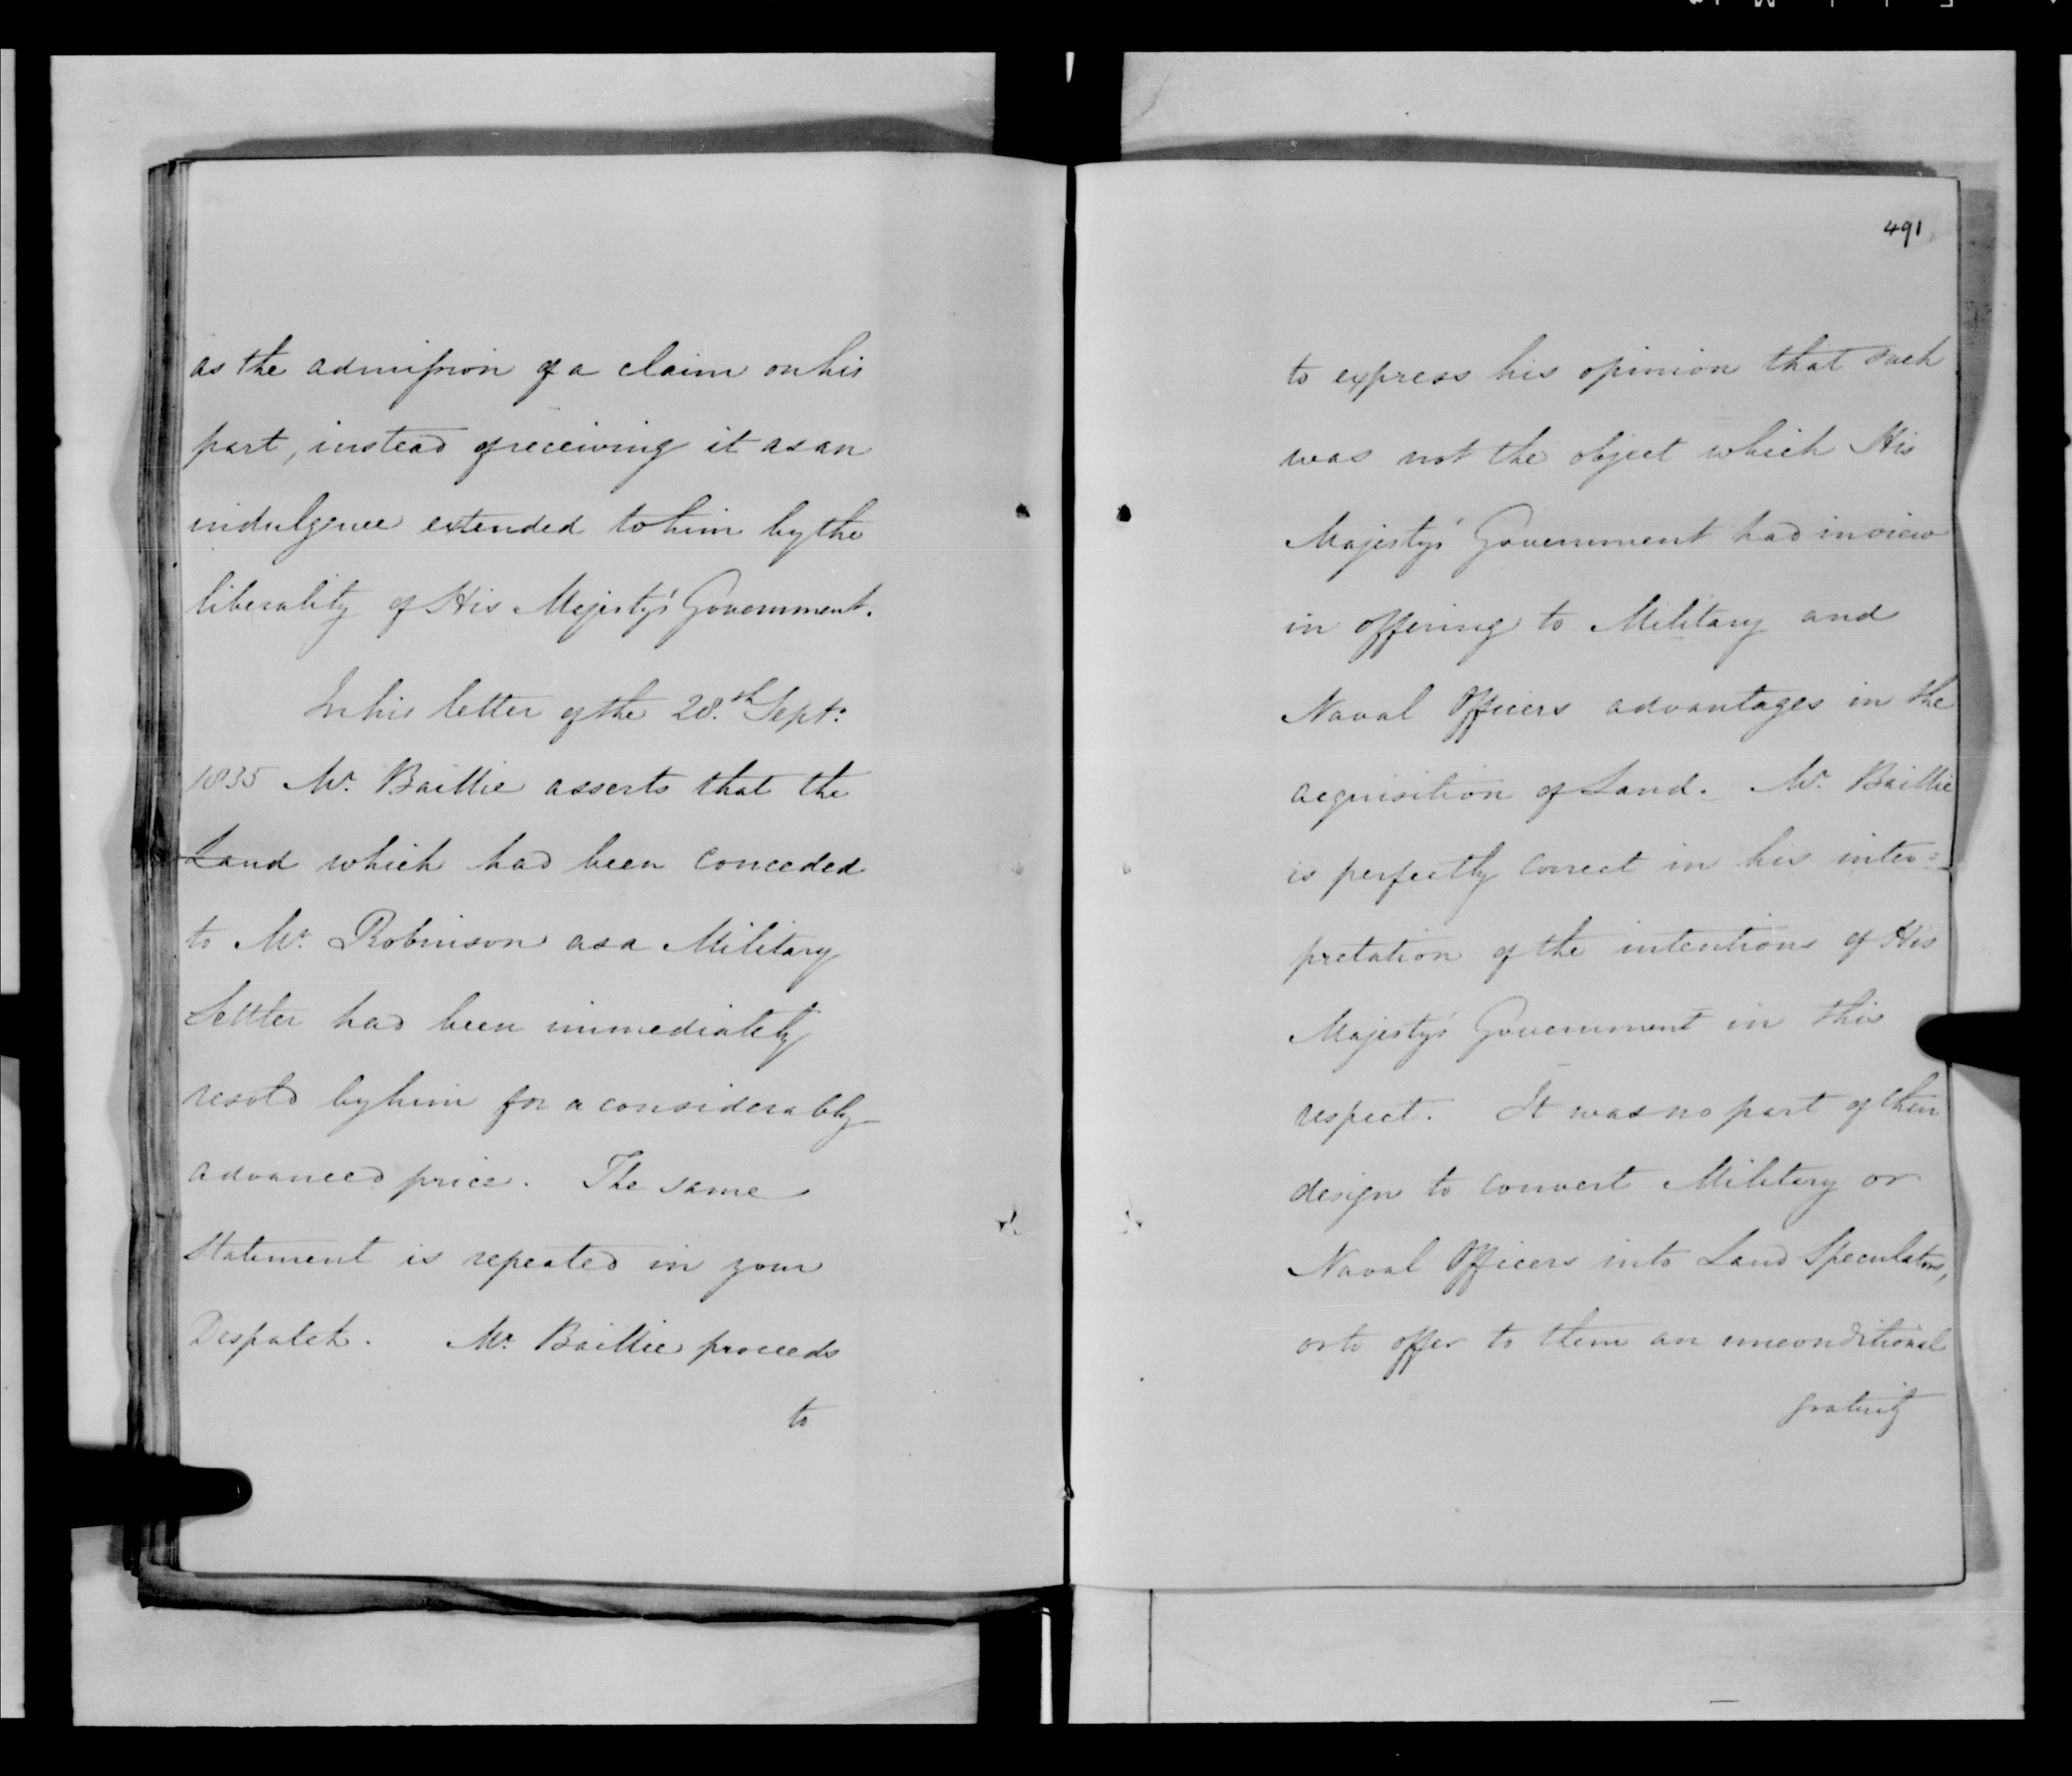 as the admission of a claim on his
part, instead of receiving it as an
indulgence extended to him by the
liberality of His Majesty's Government.
In his letter of the 28.th Sept.
1835 Mr. Baillie asserts that the
Land which had been conceded
to Mr. Robinson as a Military
Settler had been immediately
resold by him for a considerably
advanced price. The same
Statement is repeated in your
Despatch. Mr. Baillie proceeds
to
491
to express his opinion that such
was not the object which His
Majesty's Government had in view
in offering to Military and
Naval Officers advantages in the
acquisition of Land. Mr. Baillie
is perfectly correct in his inter=
pretation of the intentions of His
Majesty's Government in this
respect. It was no part of their
design to convert Military or
Naval Officers into Land Speculators,
or to offer to them an unconditional
gratuity